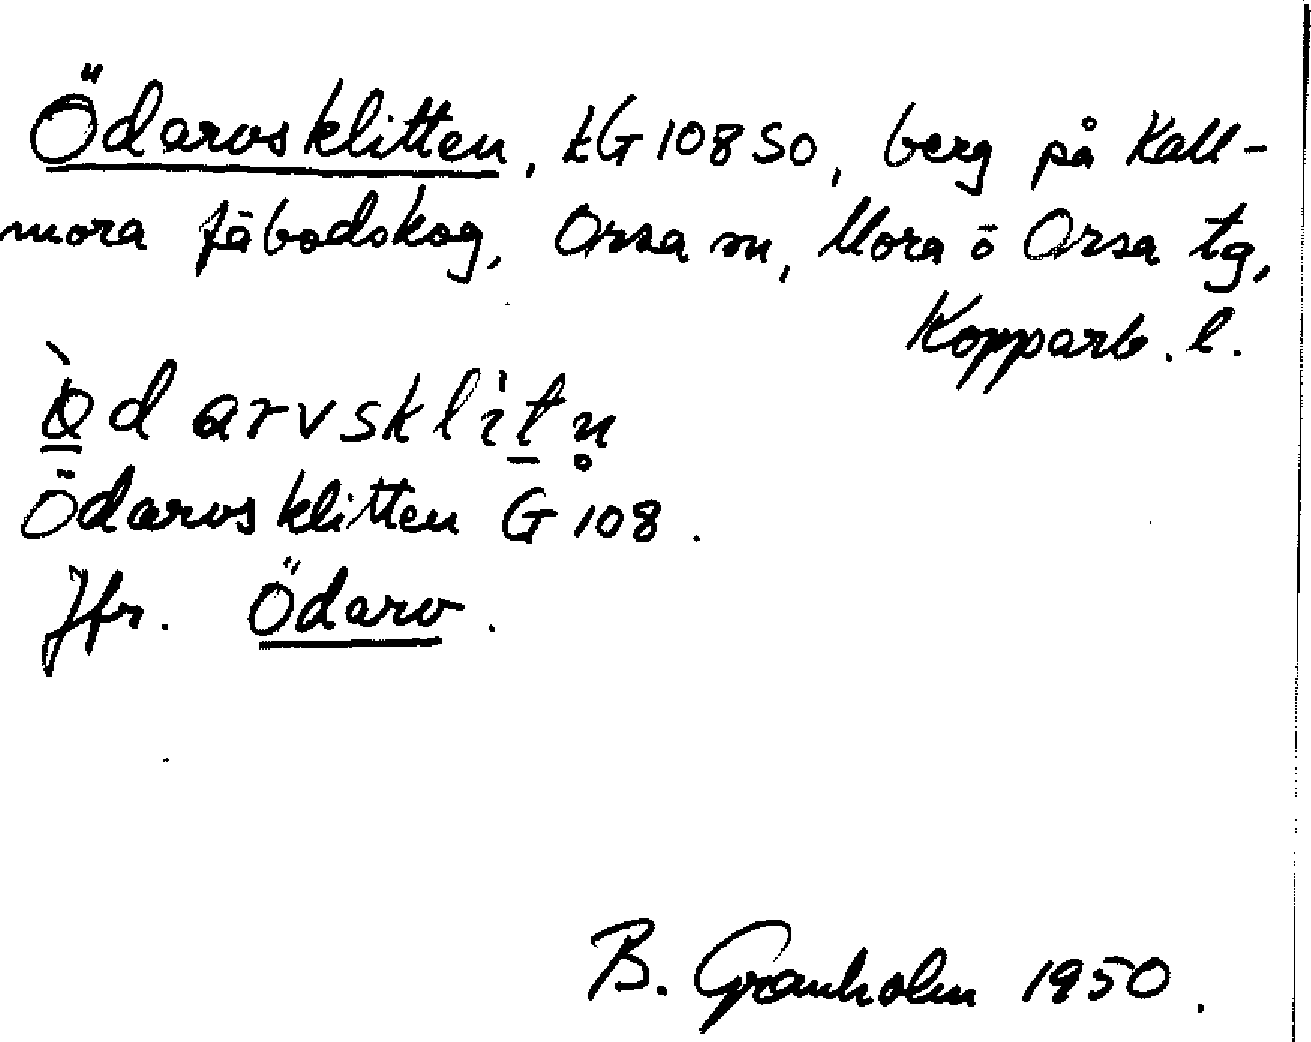 Ödarvsklitten, kG 108 SO, berg på Kall-
mora fäbodskog, Orsa m, Mora o Orsa tg,
Kopparb. l.
ö̀darvsklìt̲n̥
Ödarvsklitten G 108.
Jfr. Ödarv.
B. Granholm 1950.